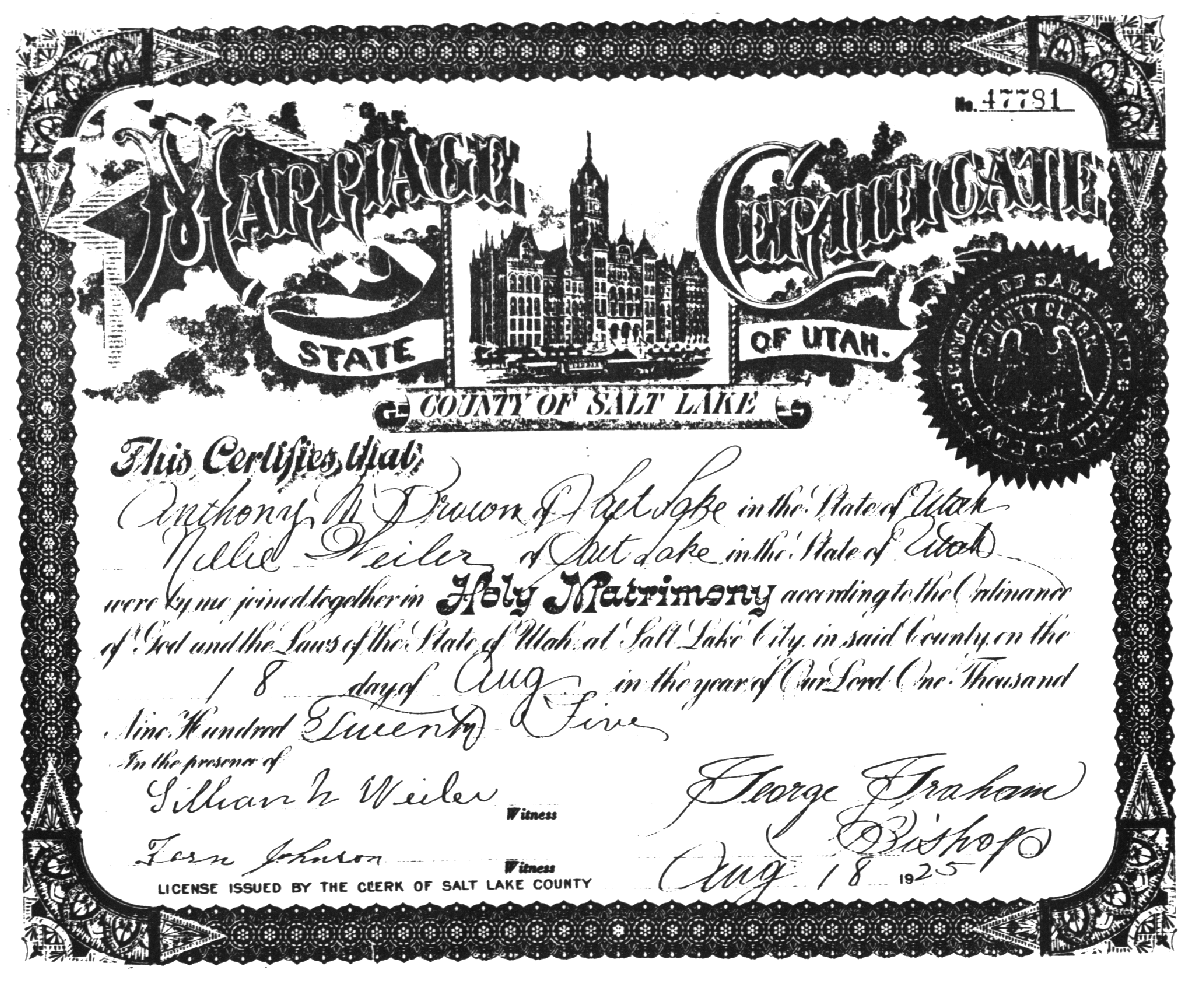 No. 47781
MARRIAGE CERTIFICATE
STATE OF UTAH.
COUNTY OF SALT LAKE
COUNTY CLERK
This Certifies, that
Anthony M Brown of Salt Lake in the State of Utah
Nellie Weiler of Salt Lake in the State of Utah
were by me joined together in Holy Matrimony according to the Ordinance
of God and the Laws of the State of Utah at Salt Lake City in said County, on the
18 day of Aug in the year of Our Lord One Thousand
Nine Hundred Twenty Five
In the presence of
Lillian N Weiler Witness
George Graham
Bishop
Fern Johnson Witness
Aug 18 1925
LICENSE ISSUED BY THE CLERK OF SALT LAKE COUNTY